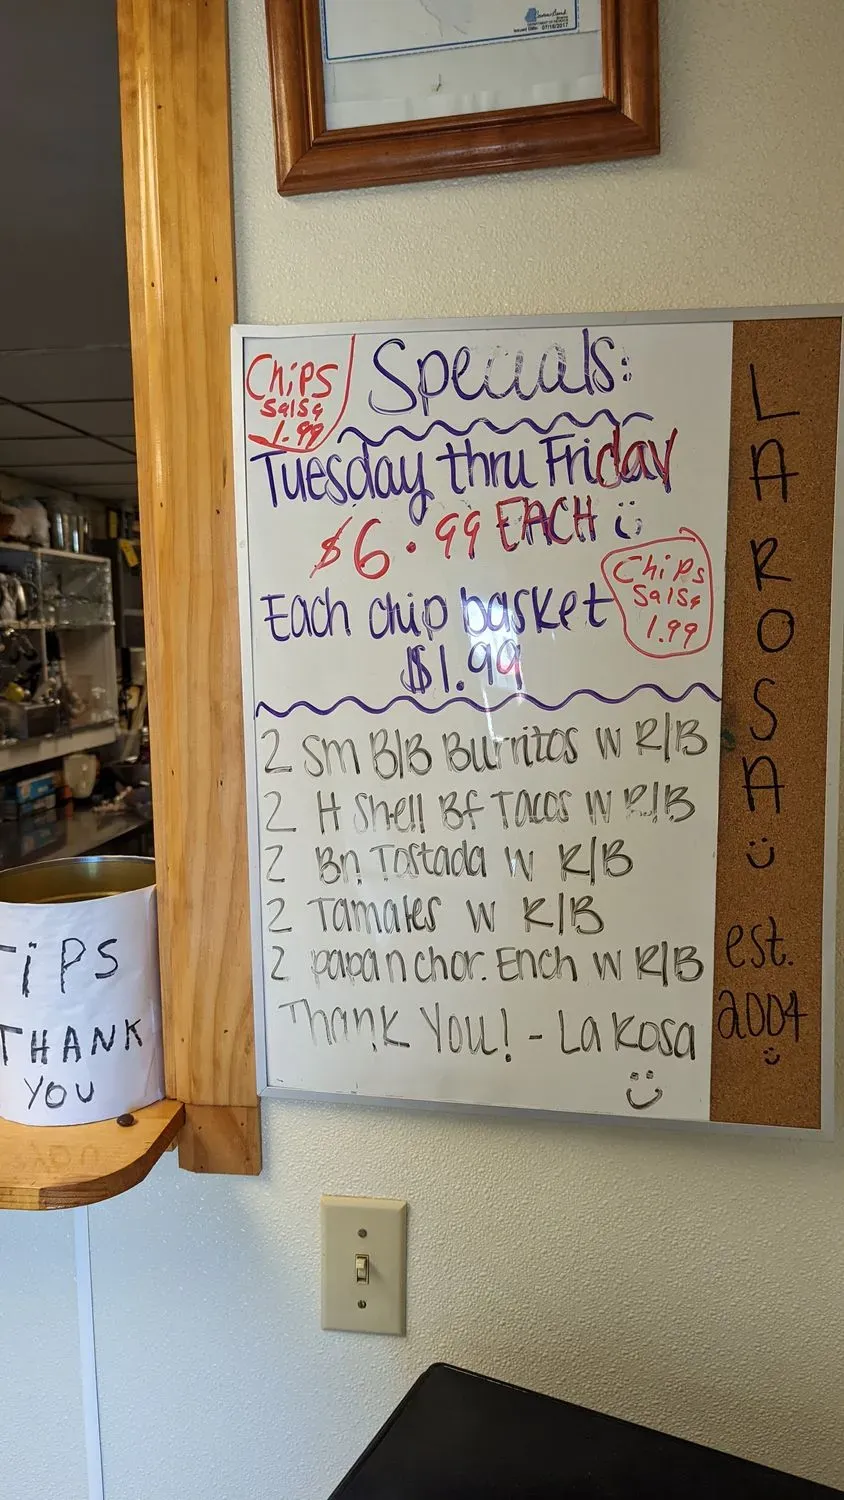 Issued Date: 07/18/2017
Chips
Salsa
1.99
Specials:
Tuesday thru Friday
$6.99 EACH
Each chip basket
$1.99
Chips
Salsa
1.99
2 Sm B/B Burritos W R/B
2 H Shell Bf Tacos W R/B
2 Bn Tostada W R/B
2 Tamales W R/B
2 papa n chor. Ench W R/B
Thank You! - La Rosa
LA ROSA
est.
2004
TiPS
THANK
YOU